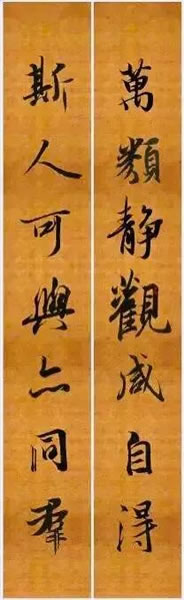 萬類静觀咸自得
斯人可與亦同羣